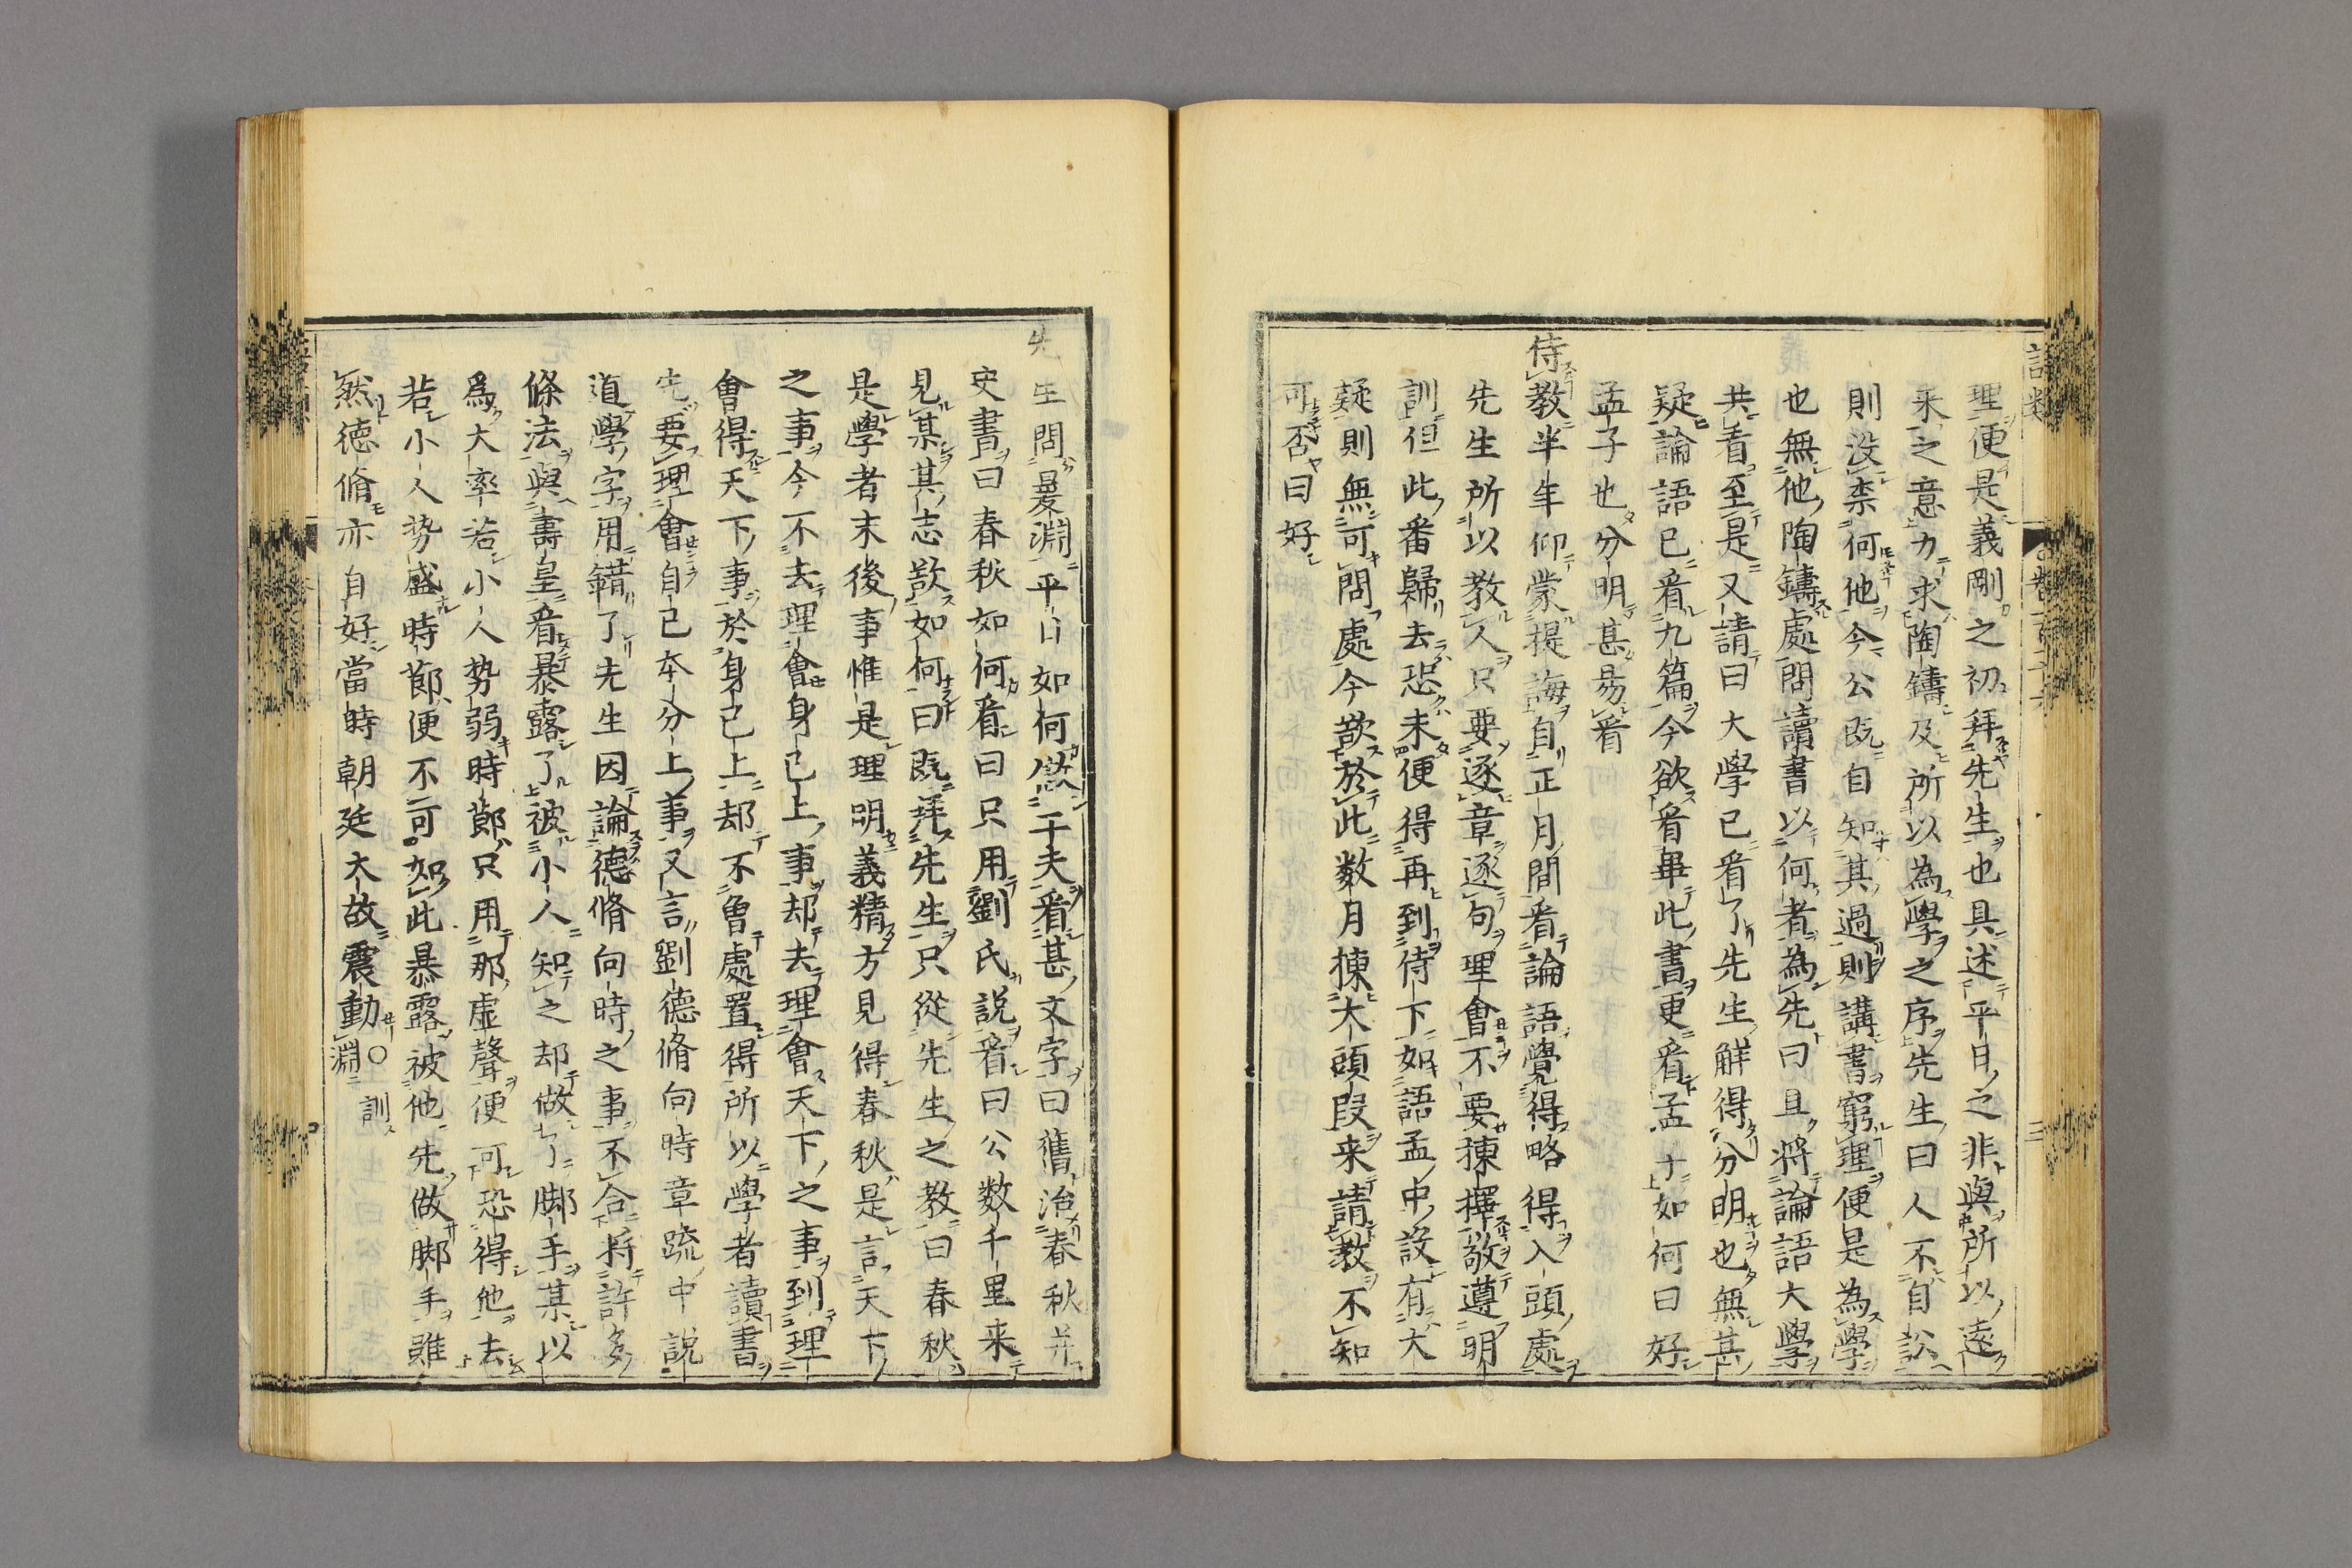 理便是義剛之初拜先生也具述平日之非與所以遠
來之意力求陶鑄及所以為學之序先生曰人不自訟
則没柰何他今公既自知其過則講書窮理便是為學
也無他陶鑄處問讀書以何者為先曰且將論語大學
共看至是又請曰大學已看了先生解得分明也無甚
疑論語已看九篇今欲看畢此書更看孟子如何曰好
孟子也分明甚易看
侍教半年仰蒙提誨自正月間看論語覺得略得入頭處
先生所以教人只要逐章逐句理會不要揀擇敬遵明
訓但此番歸去恐未便得再到侍下如語孟中設有大
疑則無可問處今欲於此数月揀大頭段来請教不知
可否曰好
先生問㬊淵平日如何做工夫看甚文字曰舊治春秋并
史書曰春秋如何看曰只用劉氏說看曰公数千里来
見某其志欲如何曰既拜先生只從先生之教曰春秋
是學者末後事惟是理明義精方見得春秋是言天下
之事今不去理會身己上事却去理會天下之事到理
會得天下事於身己上却不曾處置得所以學者讀書
先要理會自己本分上事又言劉德脩向時章疏中說
道學字用錯了先生因論德脩向時之事不合將許多
條法與壽皇看暴露了被小人知之却做了脚手某以
為大率若小人勢弱時節只用那虚聲便可恐得他去
若小人勢盛時節便不可如此暴露被他先做脚手雖
然德脩亦自好當時朝廷大故震動淵〇訓
語類
卷
三